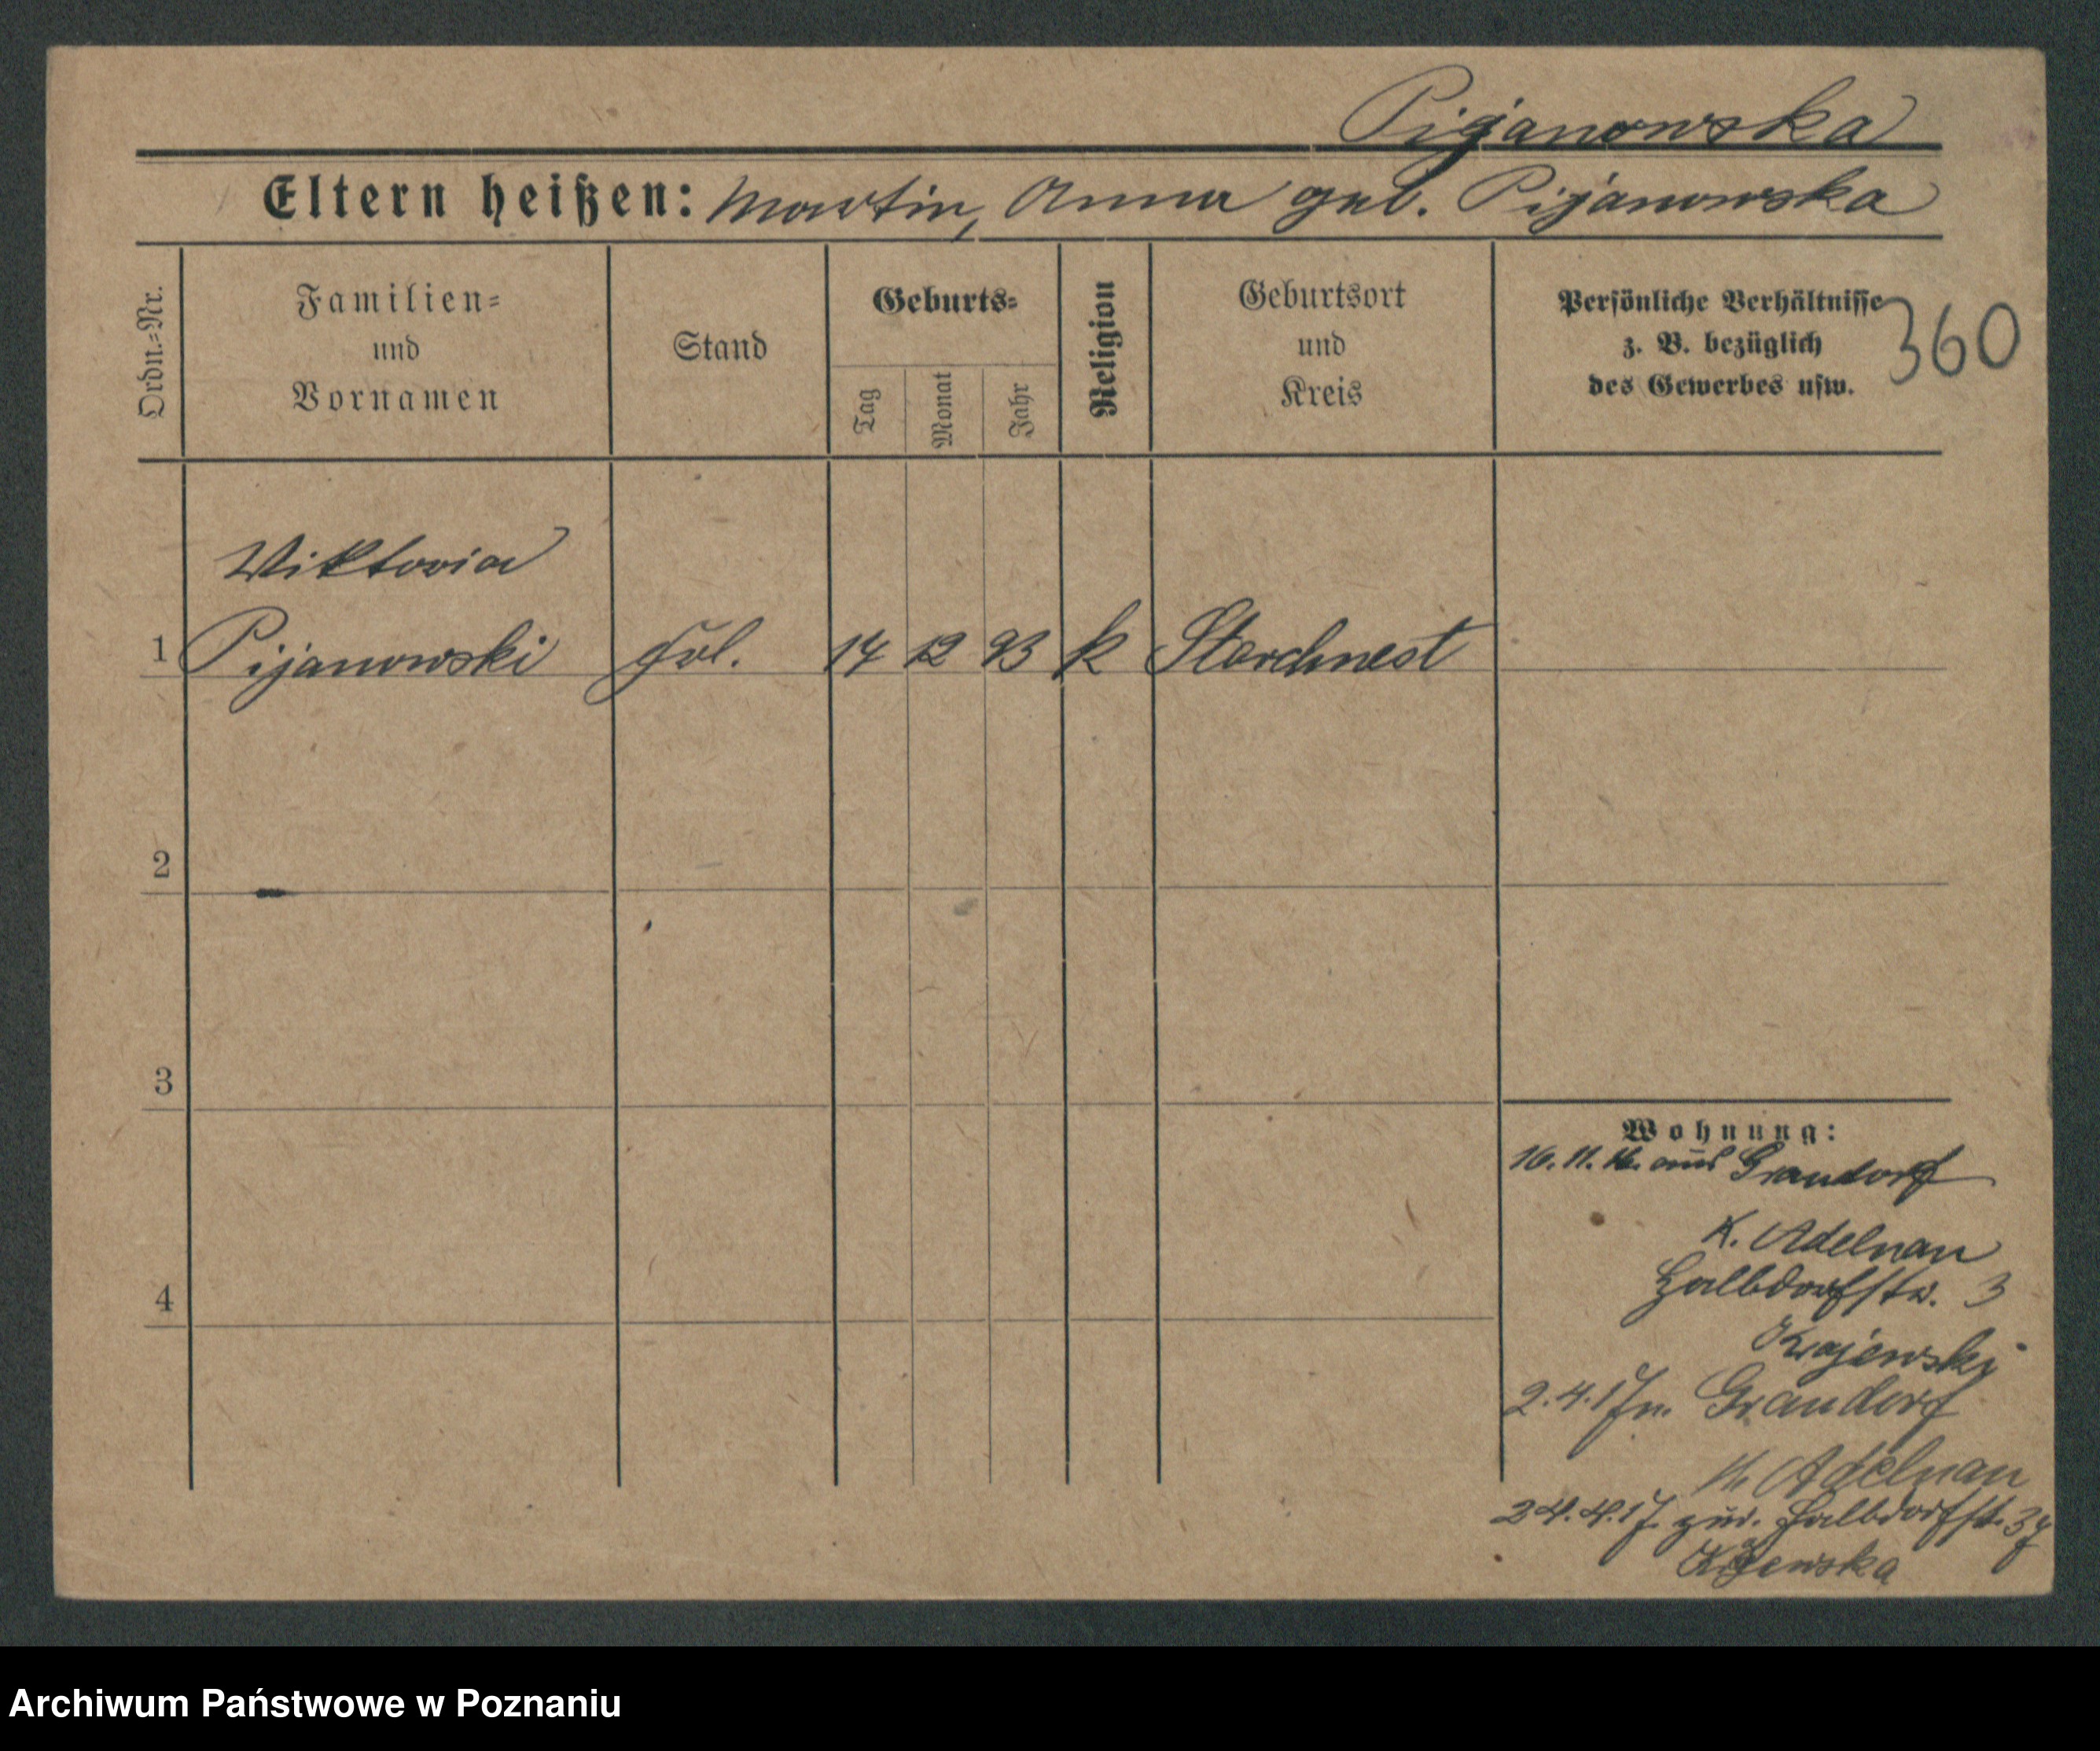 Pijanowska
Eltern heißen: Martin, Anna geb. Pijanowska
Ordn.=Nr.
Familien=
und
Vornamen
Stand
Geburts=
Tag
Monat
Jahr
Religion
Geburtsort
und
Kreis
Persönliche Verhältnisse
z. B. bezüglich
des Gewerbes usw.
360
Viktoria
1 Pijanowski frl. 14 12 93 k Storchnest
2
3
4
Wohnung:
16. 11. 16. aus Grandorf
K. Adelnau
Halbdorfstr. 3
Krajewski
2.4.17 n. Grandorf
K Adelnau
24.4.17. zur. Halbdorfst. 37
Archiwum Państwowe w Poznaniu